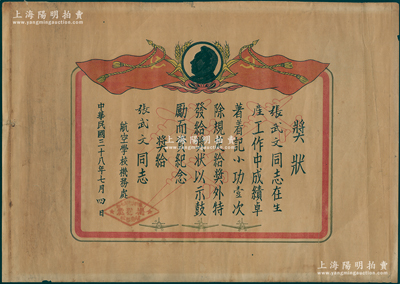 上海陽明拍賣
www.yangmingauction.com
獎狀
張武文同志在生
產工作中成績卓
著着記小功壹次
除規定給獎外特
發給獎狀以示鼓
勵而資紀念
獎給
張武文同志
航空學校機務處
中華民國三十八年七月四日
上海陽明拍賣
www.yangmingauction.com